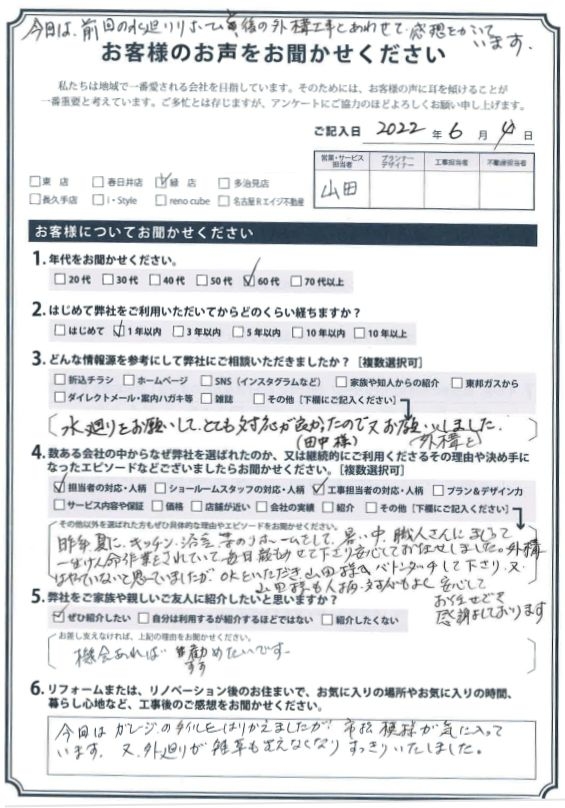 今日は、前回の水廻りリホーム 後の外構工事とあわせて、感想をかいて
います。
お客様のお声をお聞かせください
私たちは地域で一番愛される会社を目指しています。そのためには、お客様の声に耳を傾けることが
一番重要と考えています。ご多忙とは存じますが、アンケートにご協力のほどよろしくお願い申し上げます。
ご記入日 2022 年 6 月 4 日
営業・サービス担当者 プランナーデザイナー 工事担当者 不動産担当者
山田
□東 店 □春日井店 ☑緑 店 □多治見店
□長久手店 □i・Style □reno cube □名古屋Rエイジ不動産
お客様についてお聞かせください
1. 年代をお聞かせください。
□20代 □30代 □40代 □50代 ☑60代 □70代以上
2. はじめて弊社をご利用いただいてからどのくらい経ちますか？
□はじめて ☑1年以内 □3年以内 □5年以内 □10年以内 □10年以上
3. どんな情報源を参考にして弊社にご相談いただきましたか？［複数選択可］
□折込チラシ □ホームページ □SNS（インスタグラムなど） □家族や知人からの紹介 □東邦ガスから
□ダイレクトメール・案内ハガキ等 □雑誌 □その他［下欄にご記入ください］
水廻りをお願いして、とても対応が良かったので又お願いしました。
(田中様) (外構を)
4. 数ある会社の中からなぜ弊社を選ばれたのか、又は継続的にご利用くださるその理由や決め手に
なったエピソードなどございましたらお聞かせください。［複数選択可］
☑担当者の対応・人柄 □ショールームスタッフの対応・人柄 ☑工事担当者の対応・人柄 □プラン＆デザイン力
□サービス内容や保証 □価格 □店舗が近い □会社の実績 □紹介 □その他［下欄にご記入ください］
その他以外を選ばれた方もぜひ具体的な理由やエピソードをお聞かせください。
昨年夏に、キッチン、浴室、等のリホームをして、暑い中、職人さんによって
一生けん命作業をされていて毎日 せて下さり安心してお任せしました。外構
はやていないと思っていましたが、OKといただき、山田様へバトンタッチして下さり、又、
山田様も人柄・対応もよく安心して
お任せでき
感謝しております
5. 弊社をご家族や親しいご友人に紹介したいと思いますか？
☑ぜひ紹介したい □自分は利用するが紹介するほどではない □紹介したくない
お差し支えなければ、上記の理由をお聞かせください。
機会あれば 勧めたいです。
すす
6. リフォームまたは、リノベーション後のお住まいで、お気に入りの場所やお気に入りの時間、
暮らし心地など、工事後のご感想をお聞かせください。
今回は ガレージのタイルをはりかえましたが 市松模様が気に入って
います。又、外廻りが雑草も生えなくなり すっきりいたしました。